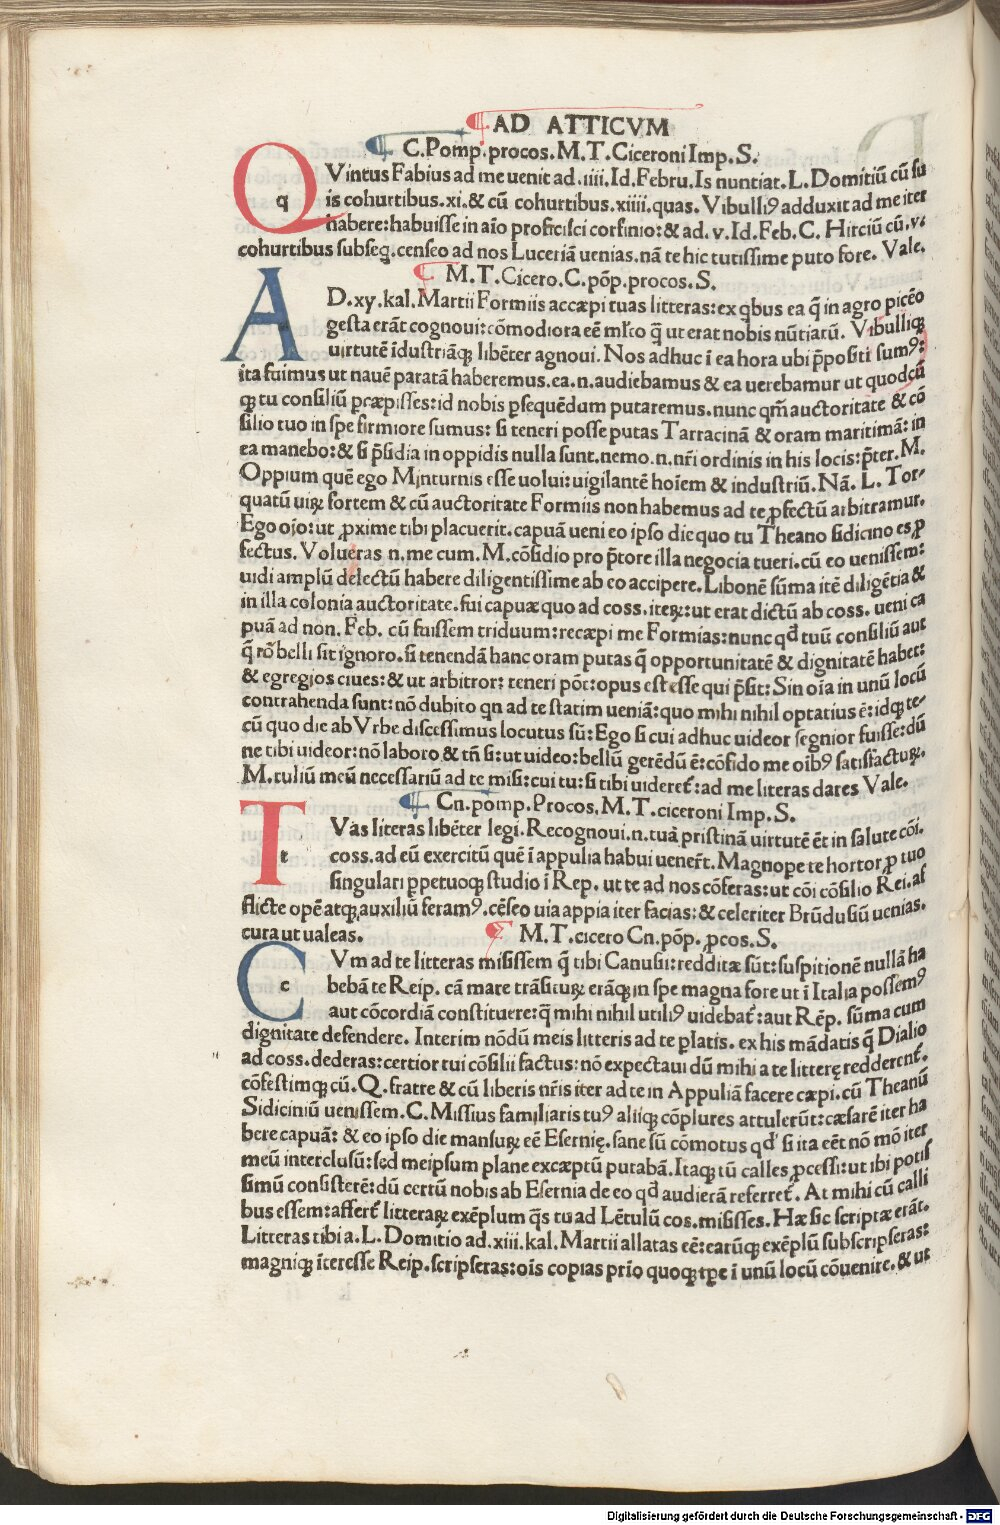 AD ATTICVM
C. Pomp. procos. M. T. Ciceroni Imp. S.
QVintus Fabius ad me uenit ad. iiii. Id. Febru. Is nuntiat. L. Domitiū cū su
q is cohortibus. xi. & cū cohurtibus. xiiii. quas. Vibulliꝰ adduxit ad me iter
habere: habuisse in aīo proficisci corfinio: & ad. v. Id. Feb. C. Hirciū cū. v.
cohurtibus subseq̄. censeo ad nos Luceriā uenias. nā te hic tutissime puto fore. Vale.
M. T. Cicero. C. pōp. procos. S.
AD. xy. kal. Martii Formiis accæpi tuas litteras: ex q̇bus ea q̄ in agro picēo
a gesta erāt cognoui: cōmodiora eē ml̄to q̄ ut erat nobis nūtiatū. Vibulliqꝫ
uirtutē īdustriāqꝫ libēter agnoui. Nos adhuc ī ea hora ubi p̄positi sumꝰ:
ita fuimus ut nauē paratā haberemus. ea. n. audiebamus & ea uerebamur ut quodcū
qꝫ tu consiliū præpisses: id nobis ꝑsequēdum putaremus. nunc qm̄ auctoritate & cō
silio tuo in spe firmiore sumus: si teneri posse putas Tarracinā & oram maritimā: in
ea manebo: & si p̄sidia in oppidis nulla sunt. nemo. n. nr̄i ordinis in his locis: p̄ter. M.
Oppium quē ego Minturnis esse uolui: uigilantē hoīem & industriū. Nā. L. Tor-
quatū uiꝝ fortem & cū auctoritate Formiis non habemus ad te ꝓfectū arbitramur.
Ego oīo: ut ꝓxime tibi placuerit. capuā ueni eo ipso die quo tu Theano sidicino es ꝓ
fectus. Volueras n. me cum. M. cōsidio pro p̄tore illa negocia tueri. cū eo uenissem:
uidi amplū delectū habere diligentissime ab eo accipere. Libonē sūma itē diligētia &
in illa colonia auctoritate. fui capuæ quo ad coss. iteꝝ: ut erat dictū ab coss. ueni ca
puā ad non. Feb. cū fuissem triduum: recæpi me Formias: nunc qđ tuū consiliū aut
q̄ rō belli sit ignoro. si tenendā hanc oram putas q̄ opportunitatē & dignitatē habet:
& egregios ciues: & ut arbitror: teneri pōt: opus est esse qui p̄sit: Sin oīa in unū locū
contrahenda sunt: nō dubito qn ad te statim ueniā: quo mihi nihil optatius ē: idqꝫ te-
cū quo die ab Vrbe discessimus locutus sū: Ego si cui adhuc uideor segnior fuisse: dū
ne tibi uideor: nō laboro & tn̄ si: ut uideo: bellū gerēdū ē: cōfido me oībꝰ satisfactuꝝ.
M. tuliū meū necessariū ad te misi: cui tu: si tibi uideret̄: ad me literas dares Vale.
Cn. pomp. Procos. M. T. ciceroni Imp. S.
TVas literas libēter legi. Recognoui. n. tuā pristinā uirtutē ēt in salute cōi.
t coss. ad eū exercitū quē ī appulia habui uener̄t. Magnope te hortor ꝓ tuo
singulari ꝑpetuoqꝫ studio ī Rep. ut te ad nos cōferas: ut cōi cōsilio Rei. af
flicte opē atqꝫ auxiliū feramꝰ. cēseo uia appia iter facias: & celeriter Brūdusiū uenias.
cura ut ualeas.
M. T. cicero Cn. pōp. ꝓcos. S.
CVm ad te litteras misissem q̄ tibi Canusii: redditæ sūt: suspitionē nullā ha
c bebā te Reip. cā mare trāsituꝝ: erāqꝫ in spe magna fore ut ī Italia possemꝰ
aut cōcordiā constituere: q̄ mihi nihil utiliꝰ uidebat̄: aut Rēp. sūma cum
dignitate defendere. Interim nōdū meis litteris ad te ꝑlatis. ex his mādatis q̄ Dialio
ad coss. dederas: certior tui cōsilii factus: nō expectaui dū mihi a te litterę redderent̄.
cōfestimqꝫ cū. Q. fratre & cū liberis nr̄is iter ad te in Appuliā facere cæpi. cū Theanū
Sidiciniū uenissem. C. Missius familiaris tuꝰ aliiqꝫ cōplures attulerūt: cæsarē iter ha
bere capuā: & eo ipso die mansuꝝ eē Esernię. sane sū cōmotus qđ si ita eēt nō mō iter
meū interclusū: sed meipsum plane excæptū putabā. Itaqꝫ tū calles ꝓcessi: ut ibi potis
simū consisterē: dū certū nobis ab Esernia de eo qđ audierā referret̄. At mihi cū calli
bus essem: affert̄ litteraꝝ exēplum q̄s tu ad Lētulū cos. misisses. Hæ sic scriptæ erāt.
Litteras tibi a. L. Domitio ad. xiii. kal. Martii allatas eē: earūqꝫ exēplū subscripseras:
magniqꝫ īteresse Reip. scripseras: oīs copias prīo quoqꝫ tp̄e ī unū locū cōuenire. & ut
Digitalisierung gefördert durch die Deutsche Forschungsgemeinschaft - DFG